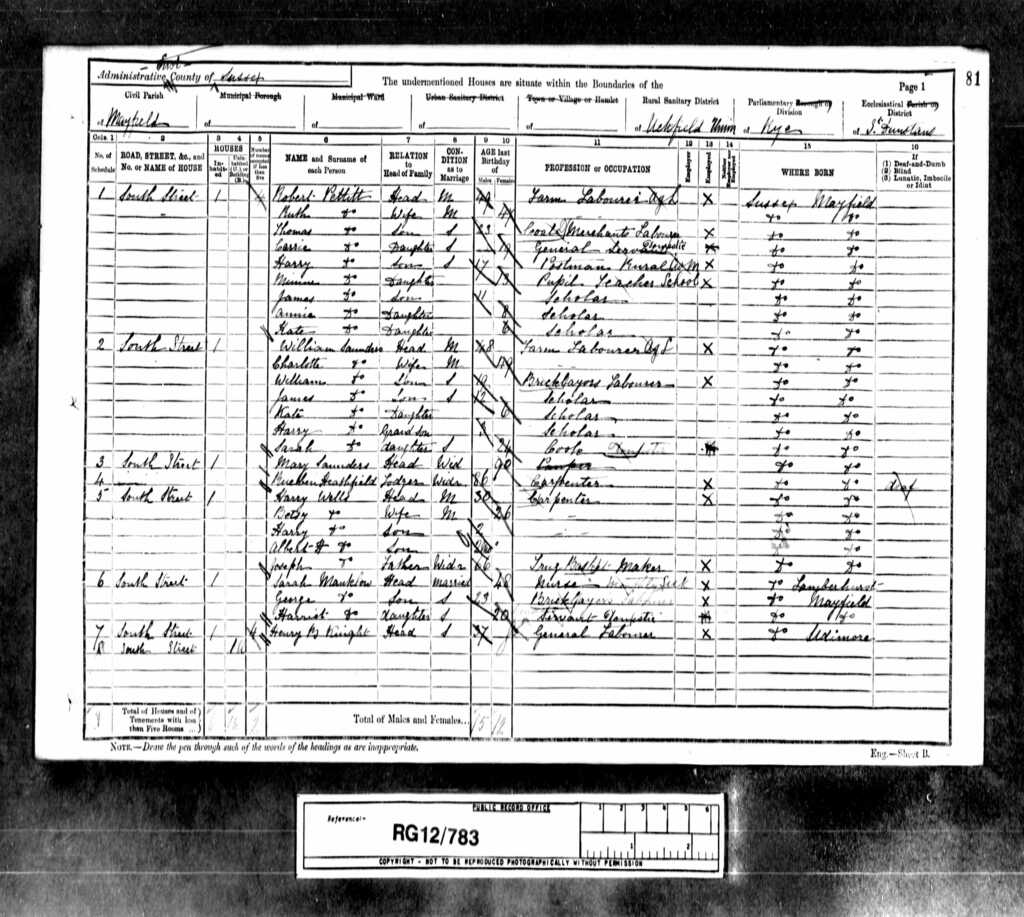 East
Administrative County of Sussex
The undermentioned Houses are situate within the Boundaries of the
Page 1
81
Civil Parish
of Mayfield
Municipal Borough
of
Municipal Ward
of
Urban Sanitary District
of
Town or Village or Hamlet
of
Rural Sanitary District
of Uckfield Union
Parliamentary Borough or Division
of Rye
Ecclesiastical Parish or District
of St Dunstans
Cols. 1 2 3 4 5 6 7 8 9 10 11 12 13 14 15 16
No. of Schedule
ROAD, STREET, &c., and No. or NAME of HOUSE
HOUSES
Inhabited
Uninhabited (U.) or Building (B.)
Number of rooms occupied if less than five
NAME and Surname of each Person
RELATION to Head of Family
CONDITION as to Marriage
AGE last Birthday of
Males Females
PROFESSION or OCCUPATION
Employer
Employed
Neither Employer nor Employed
WHERE BORN
If
(1) Deaf-and-Dumb
(2) Blind
(3) Lunatic, Imbecile or Idiot
1 South Street 1 4 Robert Pettitt Head M 49 Farm Labourer Agl X Sussex Mayfield
Ruth do Wife M do do
Thomas do Son S 23 Coal Merchants Labourer X do do
Carrie do Daughter S 19 General Servant Domestic X do do
Harry do Son S 17 Postman Rural X do do
Minnie do Daughter Pupil Teacher School X do do
James do Son 11 Scholar do do
Annie do Daughter 8 Scholar do do
Kate do Daughter 6 Scholar do do
2 South Street 1 William Saunders Head M 48 Farm Labourer Agl X do do
Charlotte do Wife M 49 do do
William do Son S 19 Bricklayors Labourer X do do
James do Son S 12 Scholar do do
Kate do Daughter 6 Scholar do do
Harry do Grandson Scholar do do
Sarah do daughter S 24 Cook do do
3 South Street 1 Mary Saunders Head Wid 90 Pauper do do
4 Heathfield Lodger Widr 86 Carpenter X do do deaf
5 South Street 1 Harry Wells Head M 30 Carpenter X do do
Betsy do Wife M 26 do do
Harry do Son 2 do do
Albert H do Son do
Joseph do Father Widr 66 Trug Basket Maker X do do
6 South Street 1 Sarah Manklow Head Married 48 Nurse X do Lamberhurst
George do Son S 23 Bricklayers Labourer X do Mayfield
Harriet do daughter S 20 Servant Domestic X do do
7 South Street 1 4 Henry B Knight Head S 37 General Labourer X do Udimore
8 South Street
Total of Houses and of Tenements with less than Five Rooms
Total of Males and Females... 15 12
NOTE.—Draw the pen through such of the words of the headings as are inappropriate.
Eng.—Sheet B.
PUBLIC RECORD OFFICE
Reference:-
RG12/783
1 2 3 4 5 6
1 2
COPYRIGHT - NOT TO BE REPRODUCED PHOTOGRAPHICALLY WITHOUT PERMISSION